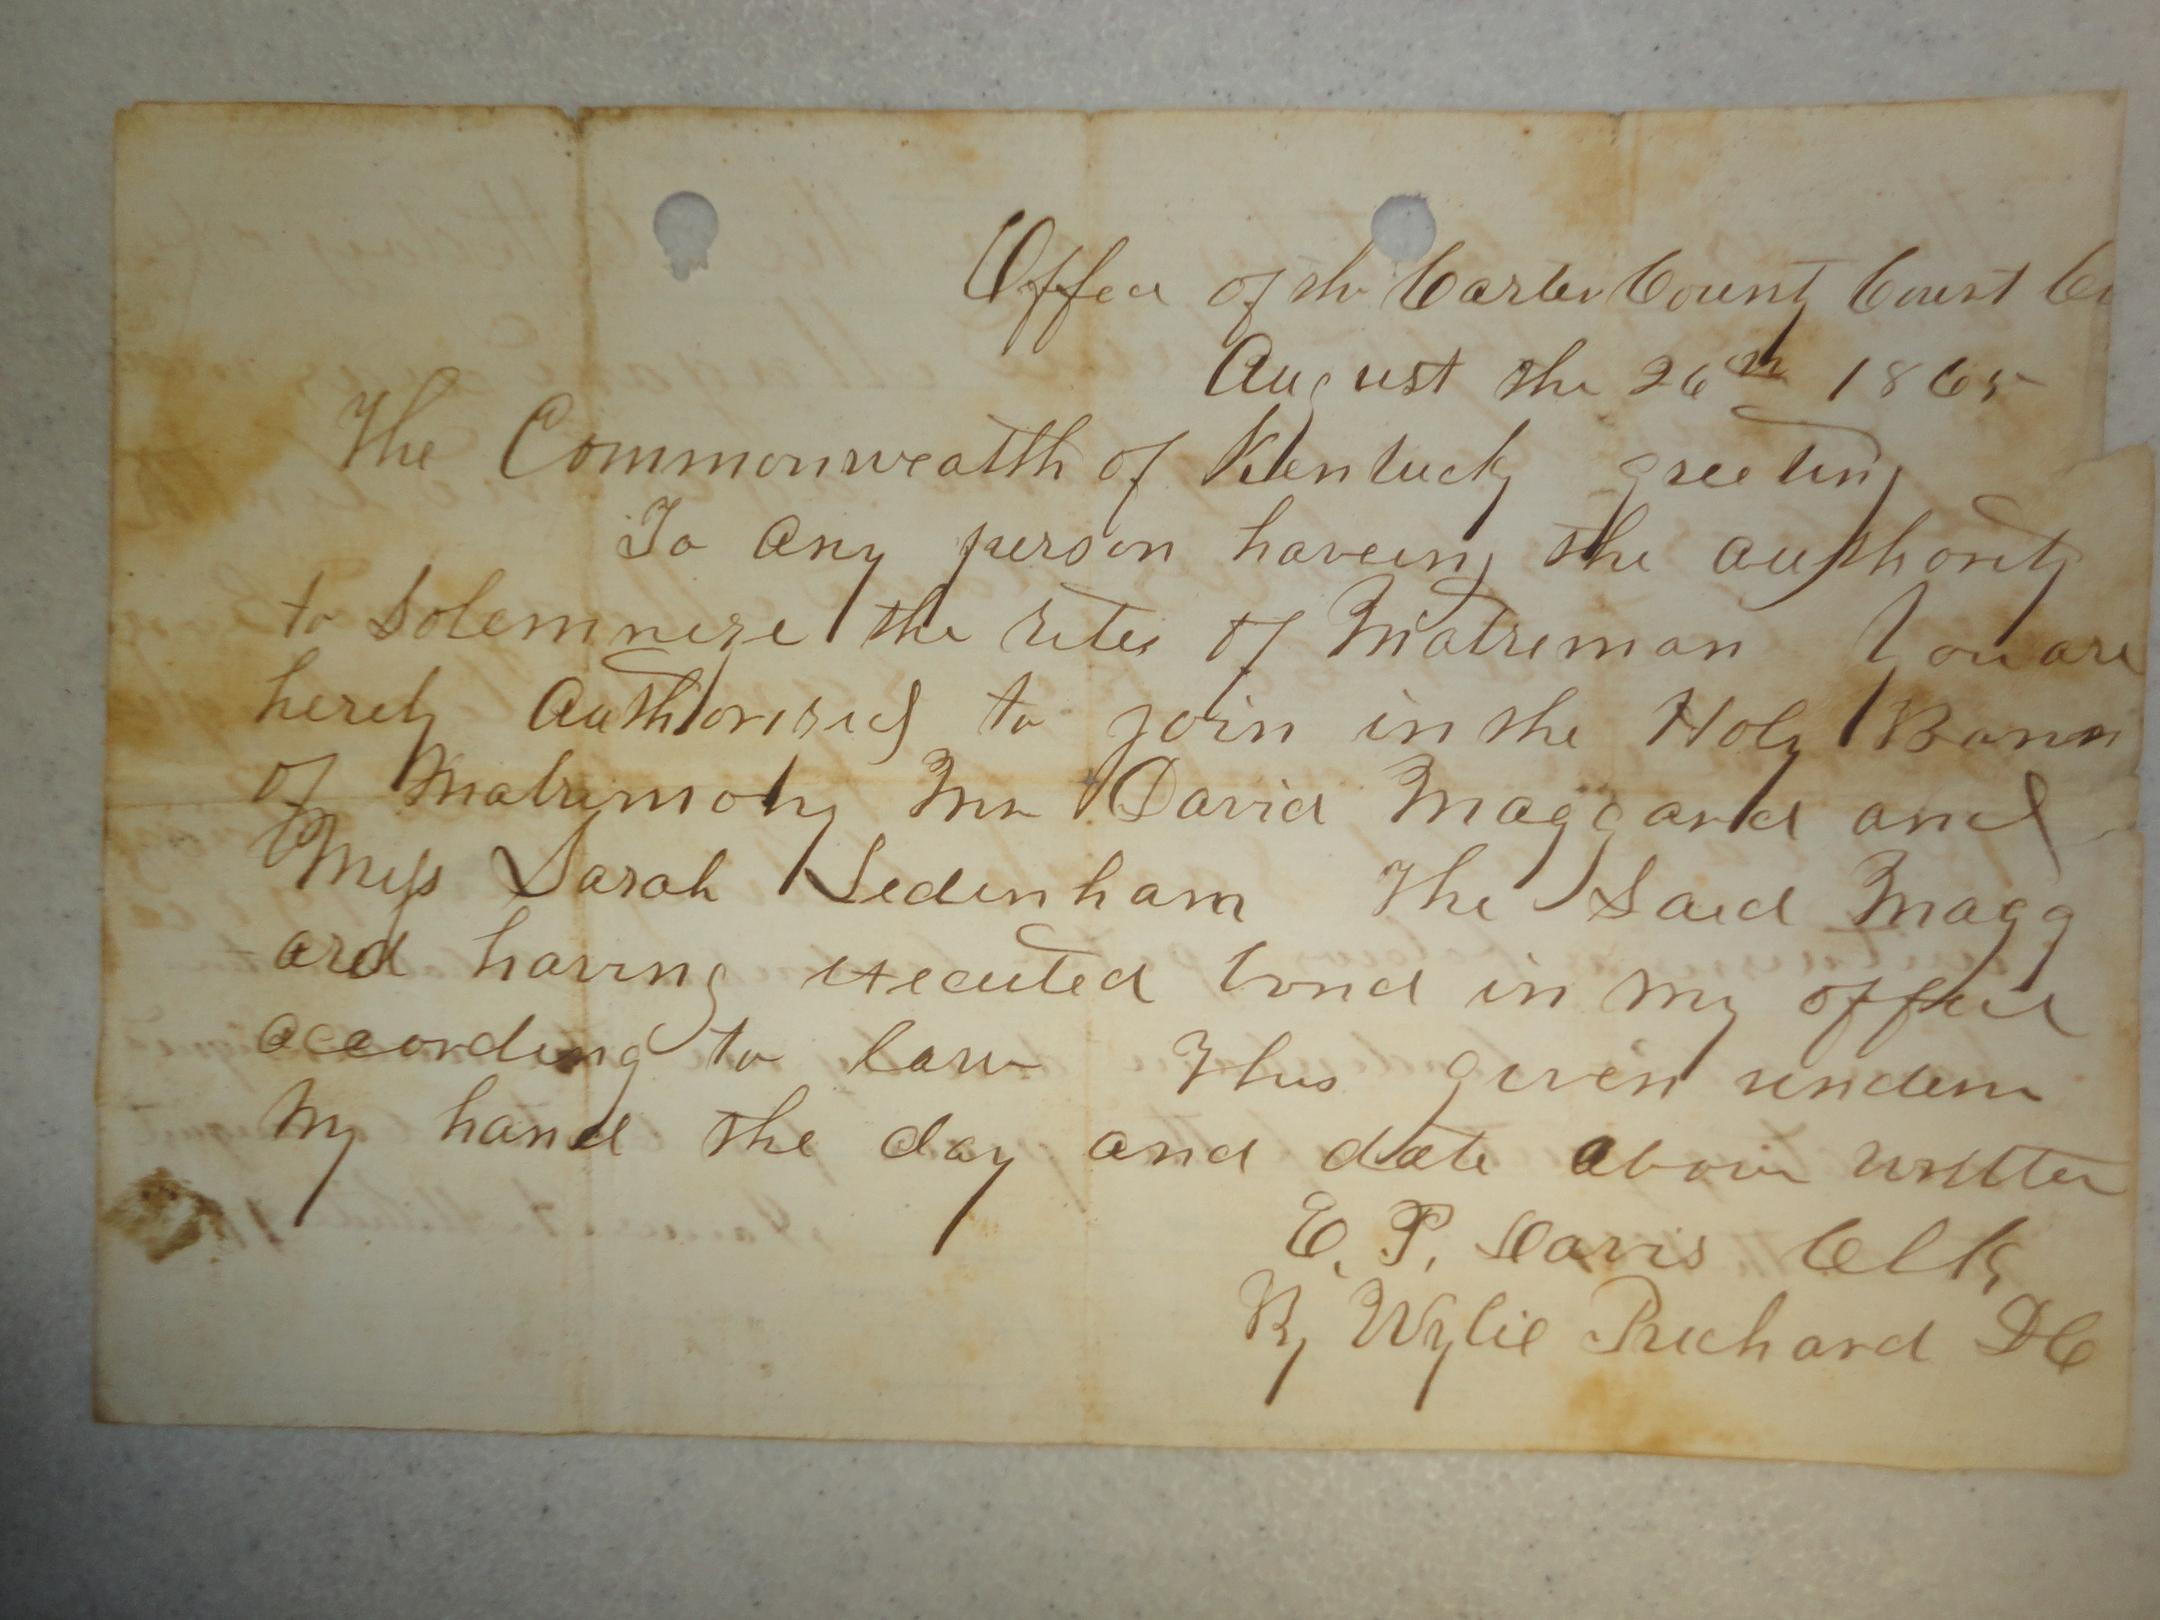 Office of the Carter County Court Cl
August the 26th 1865
The Commonwealth of Kentucky greeting
To any person haveing the authority
to Solemnize the rites of Matreman You are
herely Authorised to join in the Holy Bann
of Matrimony Mr David Maggard and
Miss Sarah Sedenham The Said Magg
ard having executed bond in my office
according to law Thus given undem
My hand the day and date above written
E. P. Davis Clk
By Wylie Prichard DC